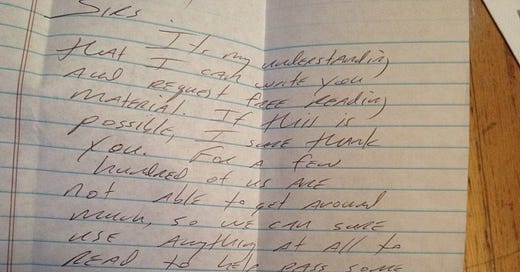 Sirs,
It is my understanding
that I can write you
and request free reading
material. If this is
possible, I sure thank
you. For a few
hundred of us are
not able to get around
much, so we can sure
use anything at all to
read to help pass some